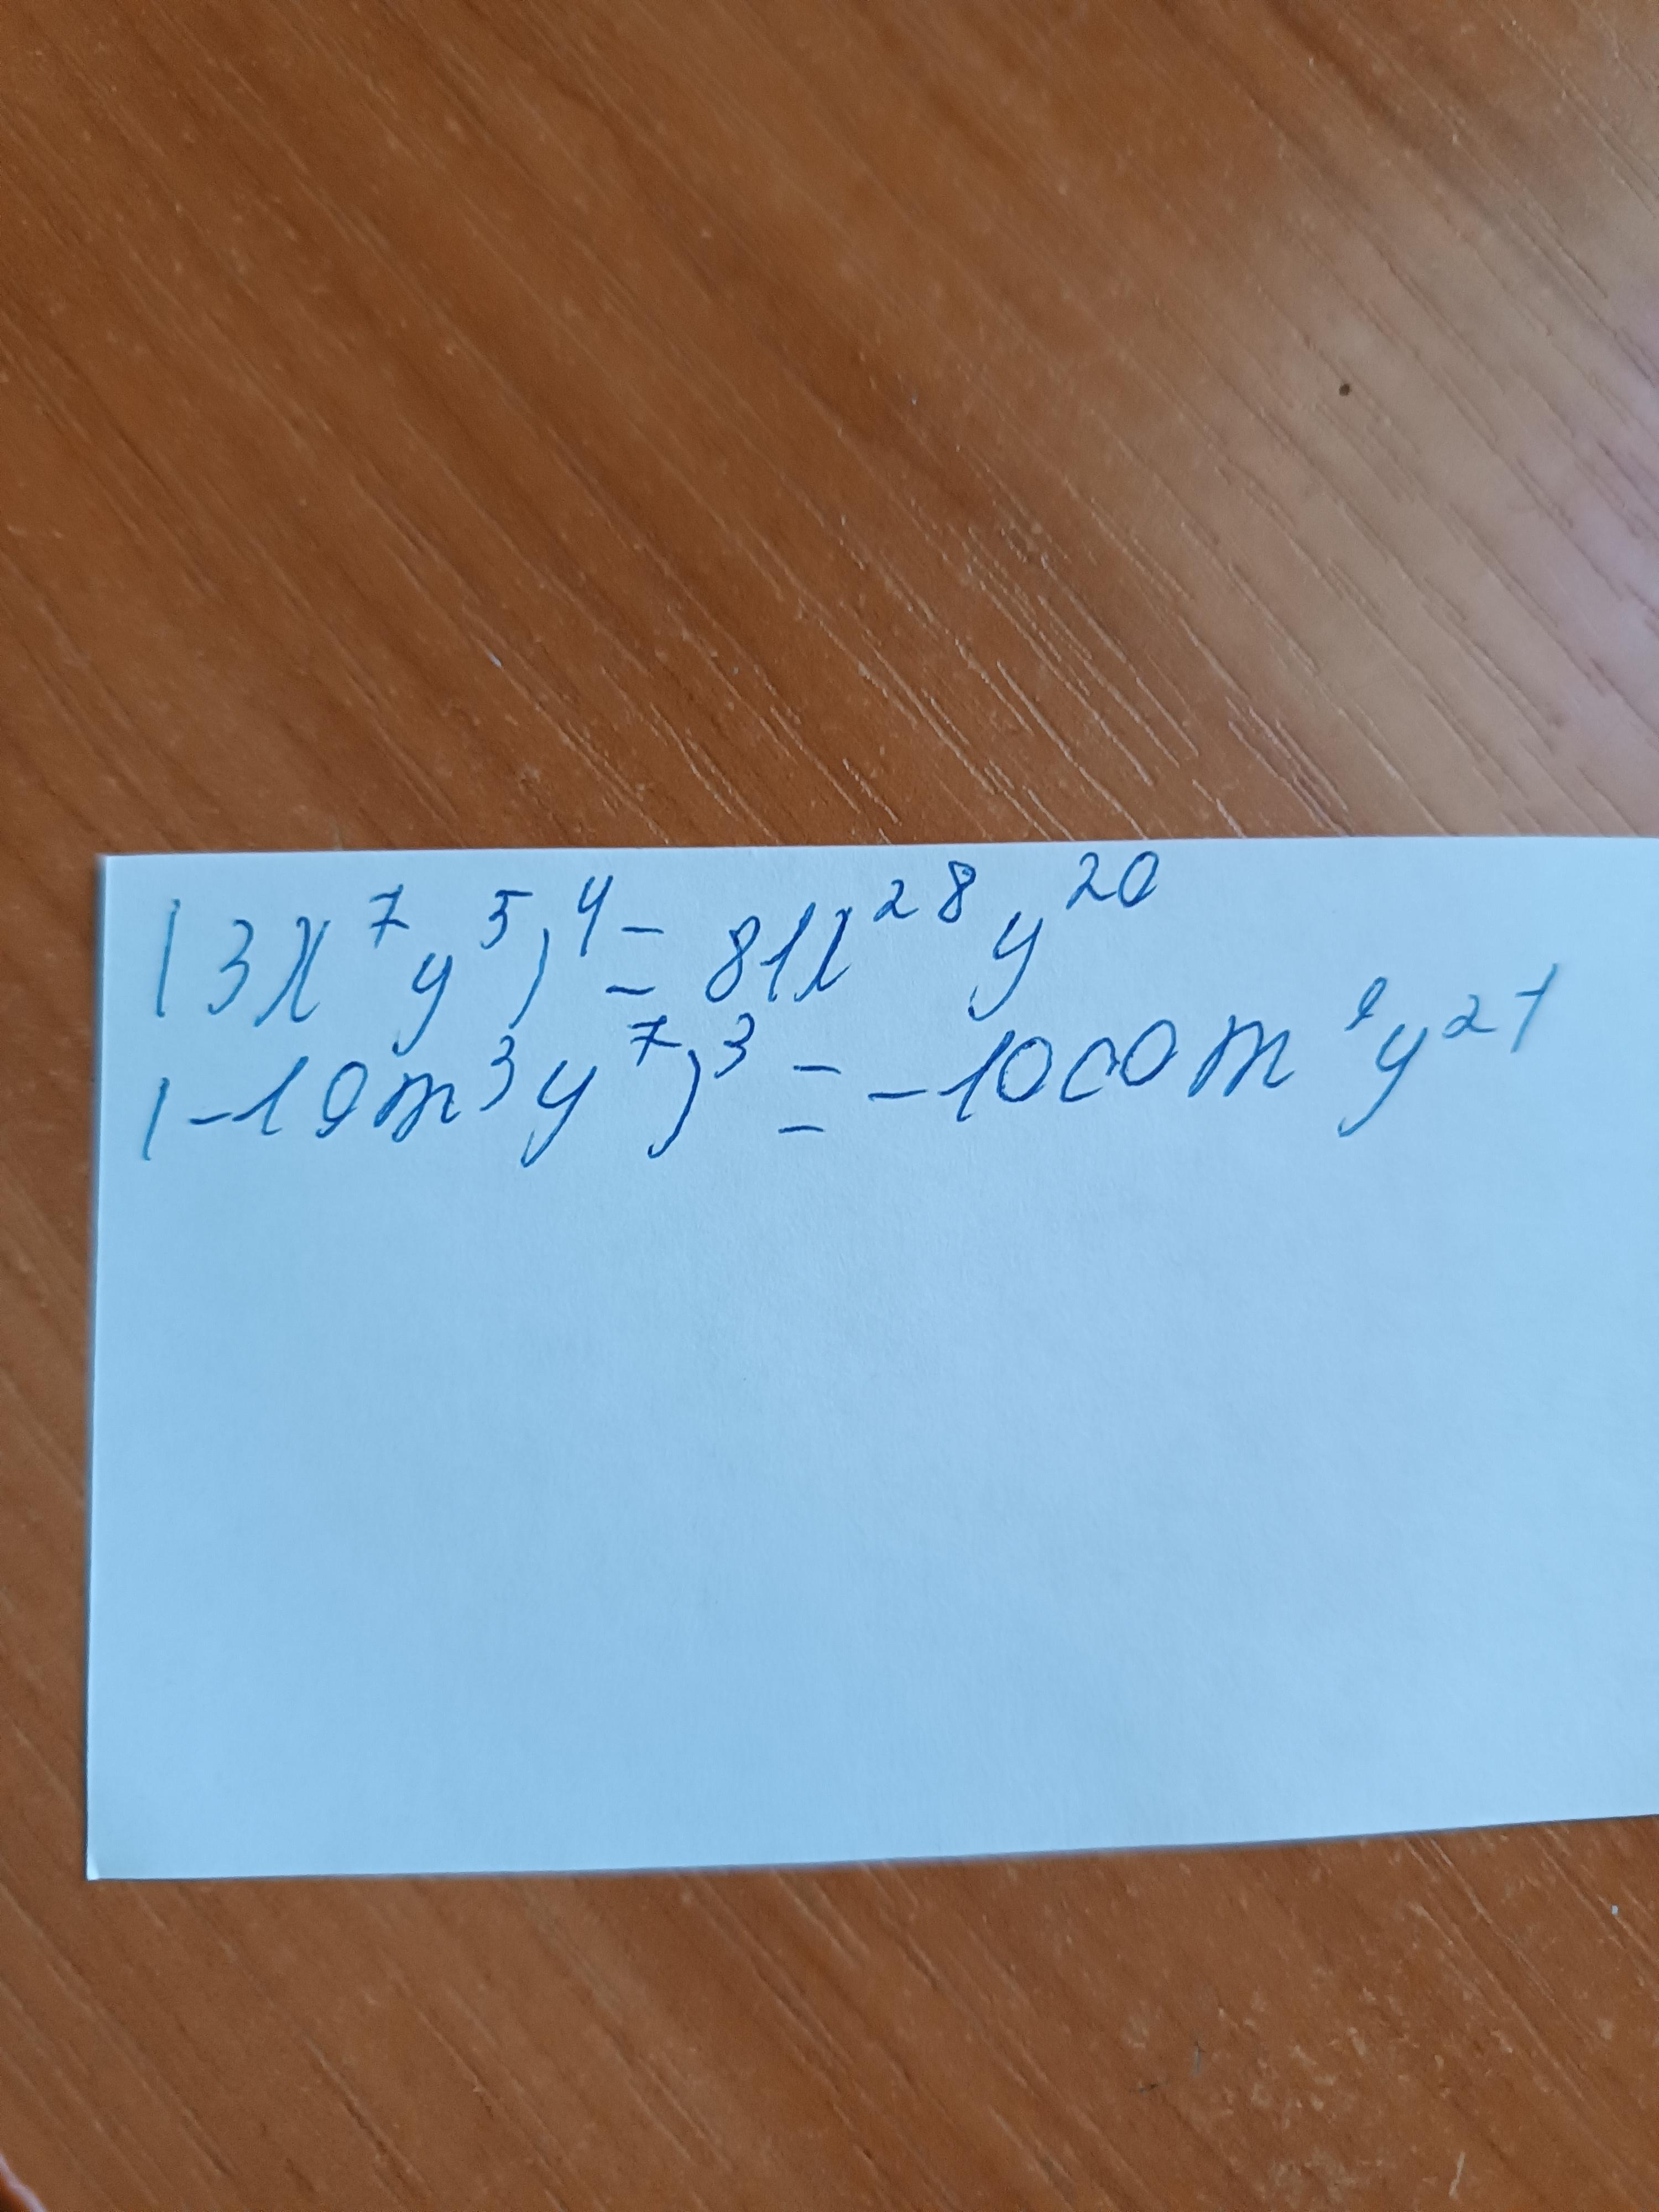 (3x⁷y⁵)⁴ = 81x²⁸y²⁰
(-10m³y⁷)³ = -1000m⁹y²¹